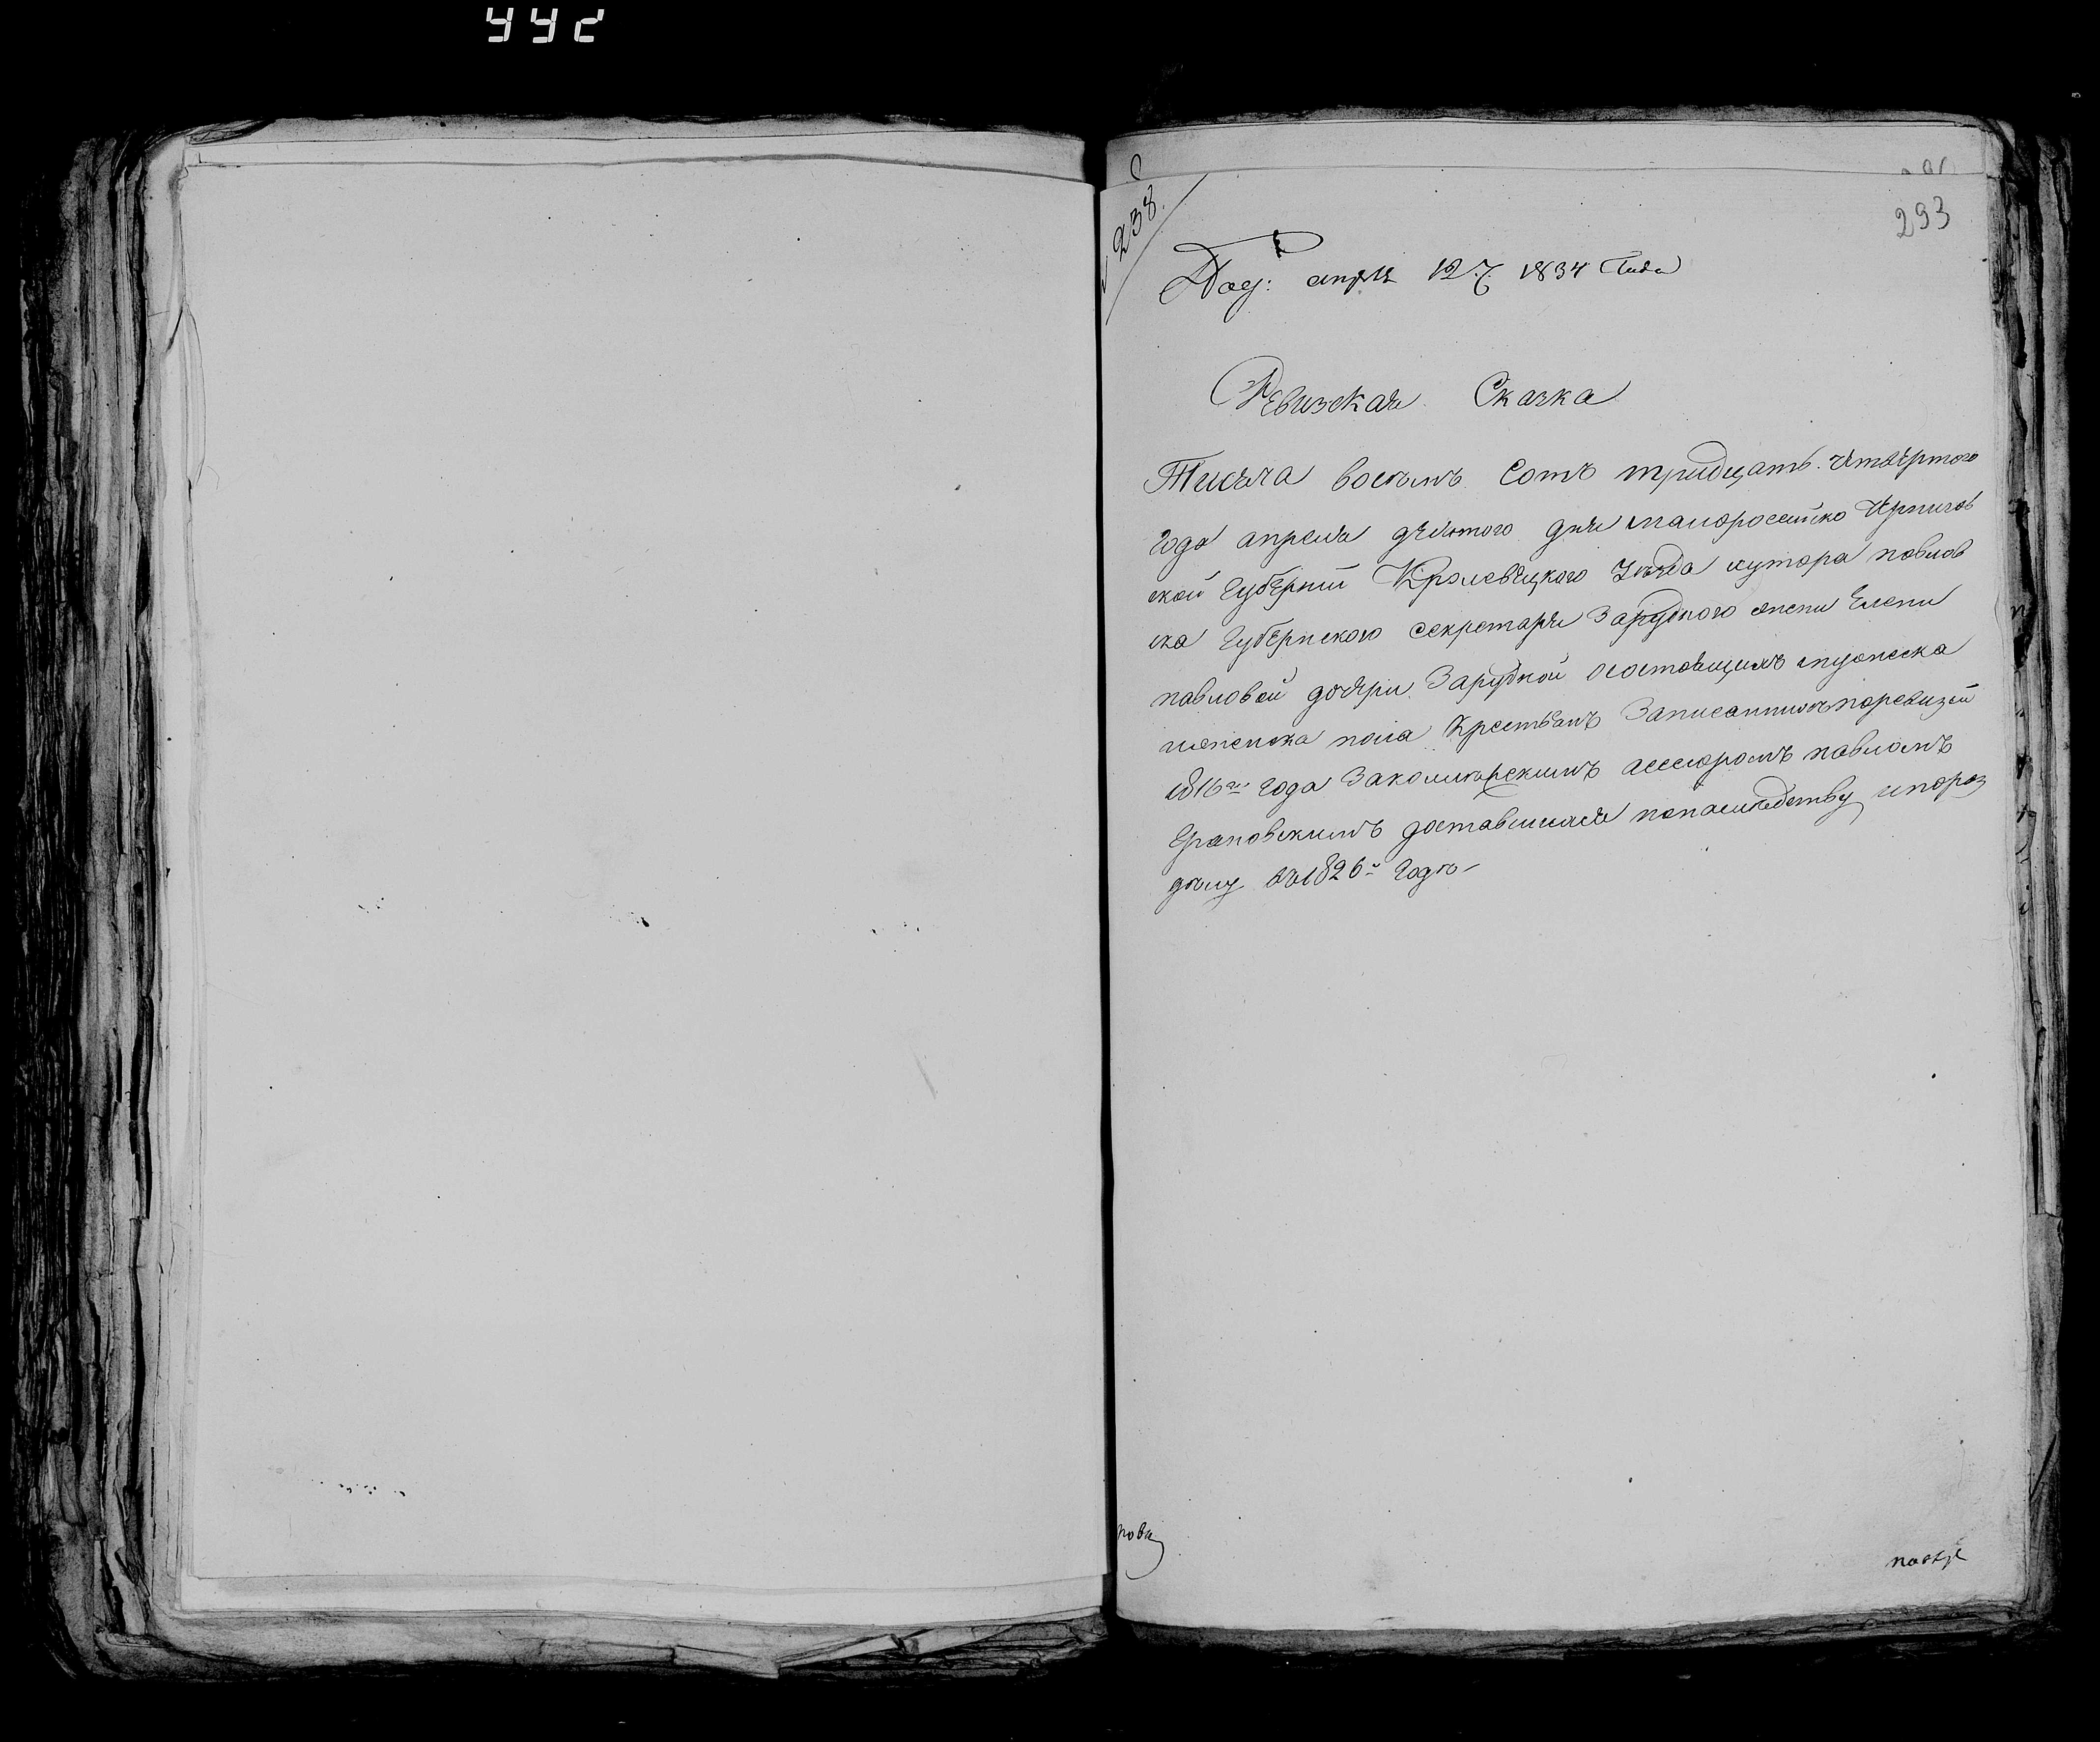 442
№ 238.
293
Под: апрля 12 7. 1834 Года
Ревизская Сказка
Тисяча восемъ Сотъ тридцать четвертого
Года апреля девятого дня малоросийско Чернигов
ской Губернии Кролевецкого Уезда хутора павлов
ска Губернского секретаря Зарудного жени Елени
павловой дочери Зарудной осостоящихъ мужеска
иженска пола Крестьянъ Записаннихъ поревизии
1816го Года Заколлежскимъ асессоромъ павломъ
Грановскимъ доставшихся понаследству ипораз
делу въ 1826м Годе